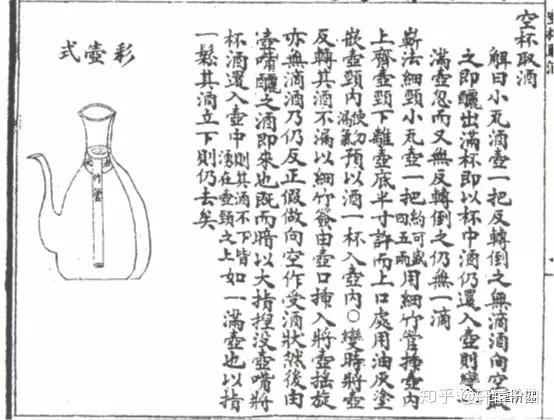 空杯取酒
解曰小瓦酒壺一把反轉倒之無滴酒向空
之即釃出滿杯即以杯中酒仍還入壺則變
滿壺忽而又無反轉倒之仍無一滴
嶄法細頸小瓦壺一把約可盛四五兩用細竹管揷壺內
上齊壺頸下離壺底半寸許而上口處用油灰塗
嵌壺頸內勿使漏氣預以酒一杯入壺內○變時將壺
反轉其酒不漏以細竹簽由壺口揷入將壺搖旋
亦無滴酒乃仍反正假做向空作受酒狀然後由
壺嘴釃之酒即來也既而暗以大指揑没壺嘴將
杯酒還入壺中則其酒不下皆湧在壺頸之上如一滿壺也以指
一鬆其酒立下則仍去矣
彩壺式
知乎